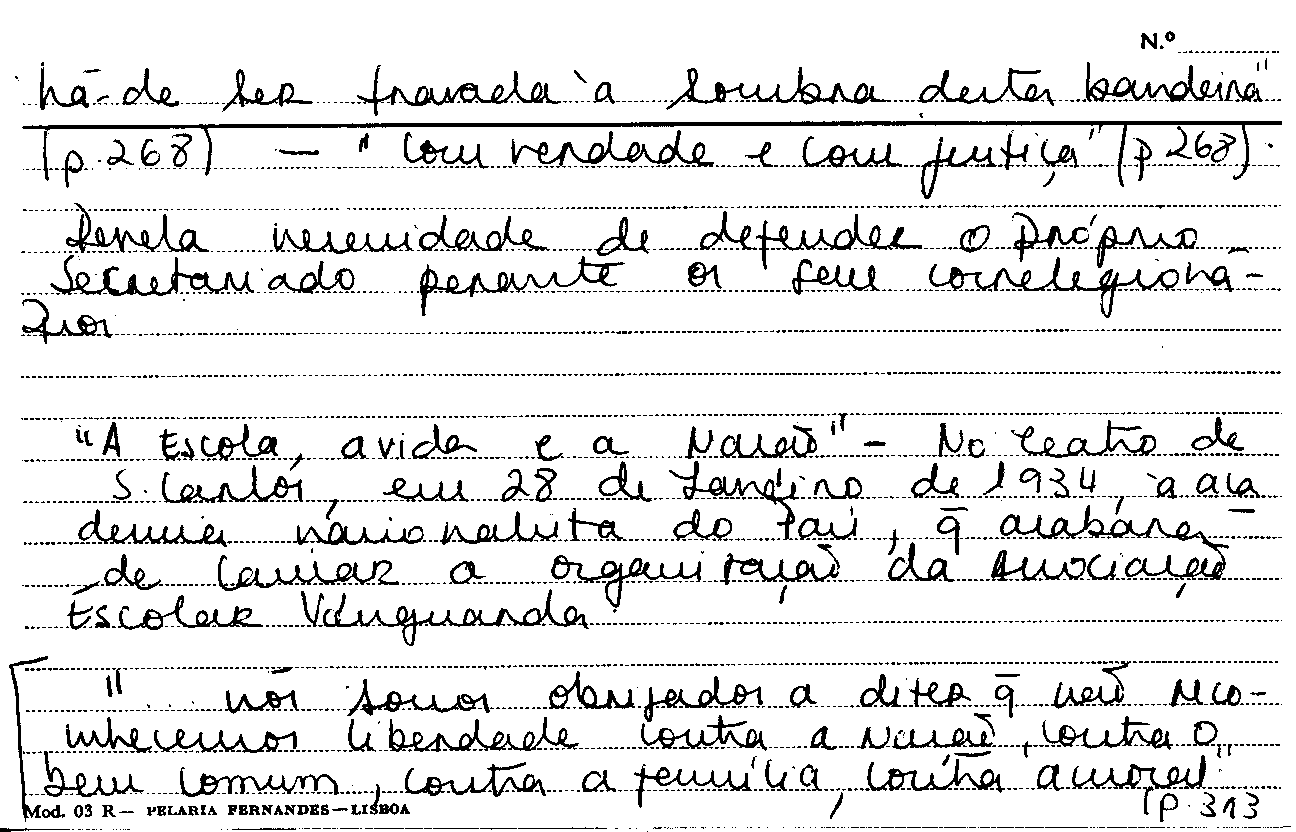 N.º
há-de ser travada à sombra desta bandeira"
(p.268) — "com verdade e com justiça" (p 268).
Revela necessidade de defender o próprio
Secretariado perante os seus correlegioná-
rios
"A Escola, a vida e a Nação" - No teatro de
S. Carlos, em 28 de Janeiro de 1934, à aca
demia nacionalista do País, q̄ acabára
de lançar a organização da Associação
Escolar Vanguarda.
"... nós somos obrigados a dizer q̄ não reco-
nhecemos liberdade contra a Nação, contra o
bem comum, contra a família, contra a moral"
(p. 313
Mod. 03 R — PELARIA FERNANDES — LISBOA